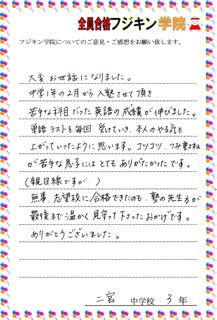 全員合格フジキン学院
フジキン学院についてのご意見・ご感想をお願い致します。
大変お世話になりました。
中学1年の2月から入塾させて頂き
苦手な科目だった英語の成績が伸びました。
単語テストを毎回受けていき、本人のやる気も
上がっていったように思います。コツコツつみ重ね
が苦手な息子にはとてもありがたかったです。
(親目線ですが)
無事、志望校に合格できたのも、塾の先生方が
最後まで温かく見守って下さったおかげです。
ありがとうございました。
二宮 中学校 3年